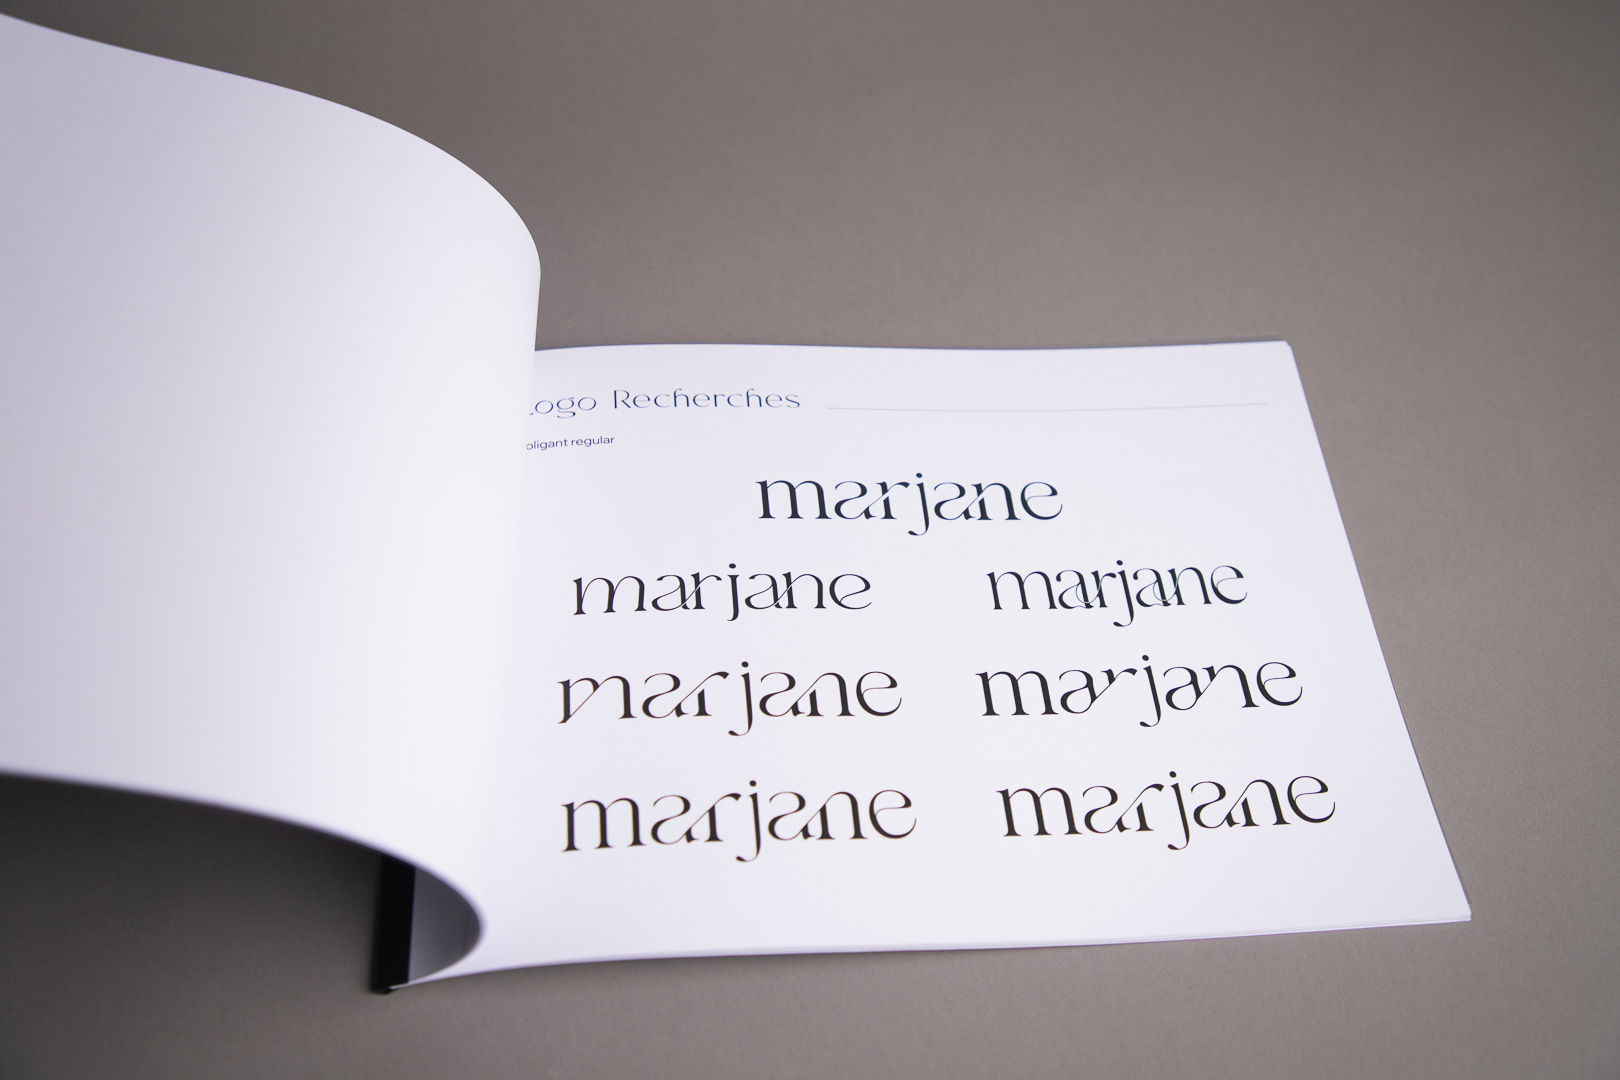 Logo Recherches
oligant regular
marjane
marjane marjane
marjane marjane
marjane marjane